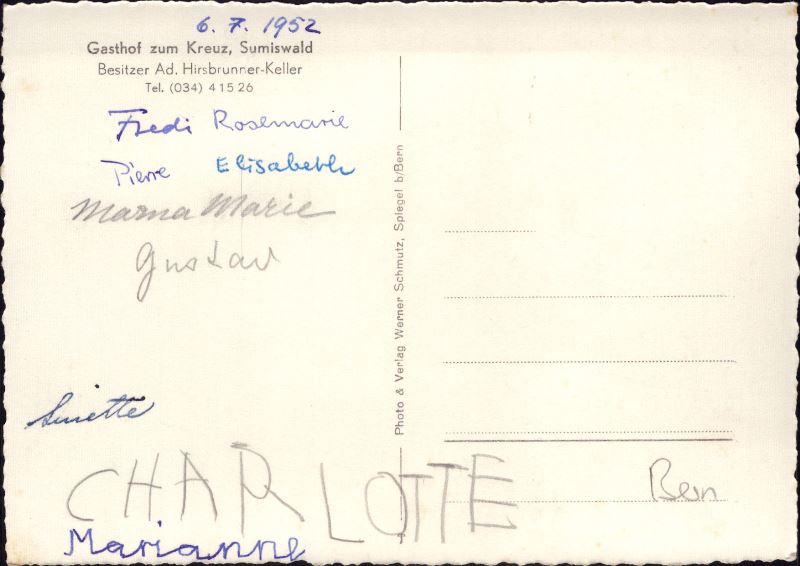 6. 7. 1952
Gasthof zum Kreuz, Sumiswald
Besitzer Ad. Hirsbrunner-Keller
Tel. (034) 4 15 26
Fredi Rosemarie
Pierre Elisabeth
Mama Marie
Gustav
CHARLOTTE
Bern
Marianne
Photo & Verlag Werner Schmutz, Spiegel b/Bern